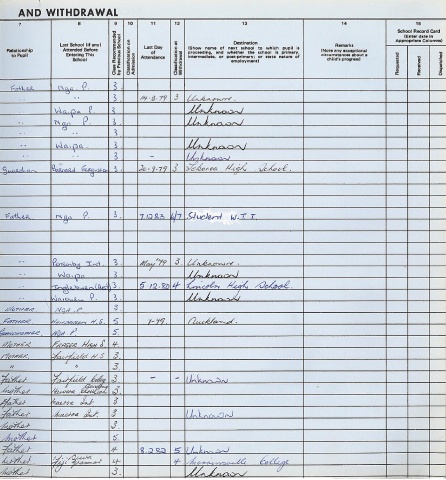 AND WITHDRAWAL
7 8 9 10 11 12 13 14 15
Relationship to Pupil
Last School (if any) Attended Before Entering This School
Class Recommended by Previous School
Classification on Admission
Last Day of Attendance
Classification at Withdrawal
Destination
(Show name of next school to which pupil is proceeding, and whether the school is primary, intermediate, or post-primary; or state nature of employment)
Remarks
(Note any exceptional circumstances about a child's progress)
School Record Card
(Enter date in Appropriate Columns)
Requested
Received
Dispatched
Father Nga P. 3
" " 3 14-8-79 3 Unknown.
" Waipa P. 3 Unknown
" Nga P. 3 Unknown
3
" Waipa. 3 Unknown
" " 3 - Unknown
Guardian Bernard Fergusson 3 20-9-79 3 High School.
Father Nga P. 3. 7.12.83 6/7 Student W.T.I.
" Ponsonby Int. 3 May '79 3 Unknown.
" Waipa 3 Unknown
" 3 5-12-80 4 Lincoln High School.
" P. 3 Unknown
MOTHER NGA P 3
FATHER H.S. 5 Auckland.
NGA P. 5
MOTHER FRASER HIGH S. 4
MOTHER. Fairfield H.S 3
" " 3.
Father Fairfield Coll 3 - - Unknown
Mother 3
Father Int 3
Father Int. 3 Unknown
Mother 3
Mother 5
Father 4 8.2.82 5 Unknown
Mother Fiji Grammar 4 4 College
Mother 3. Unknown